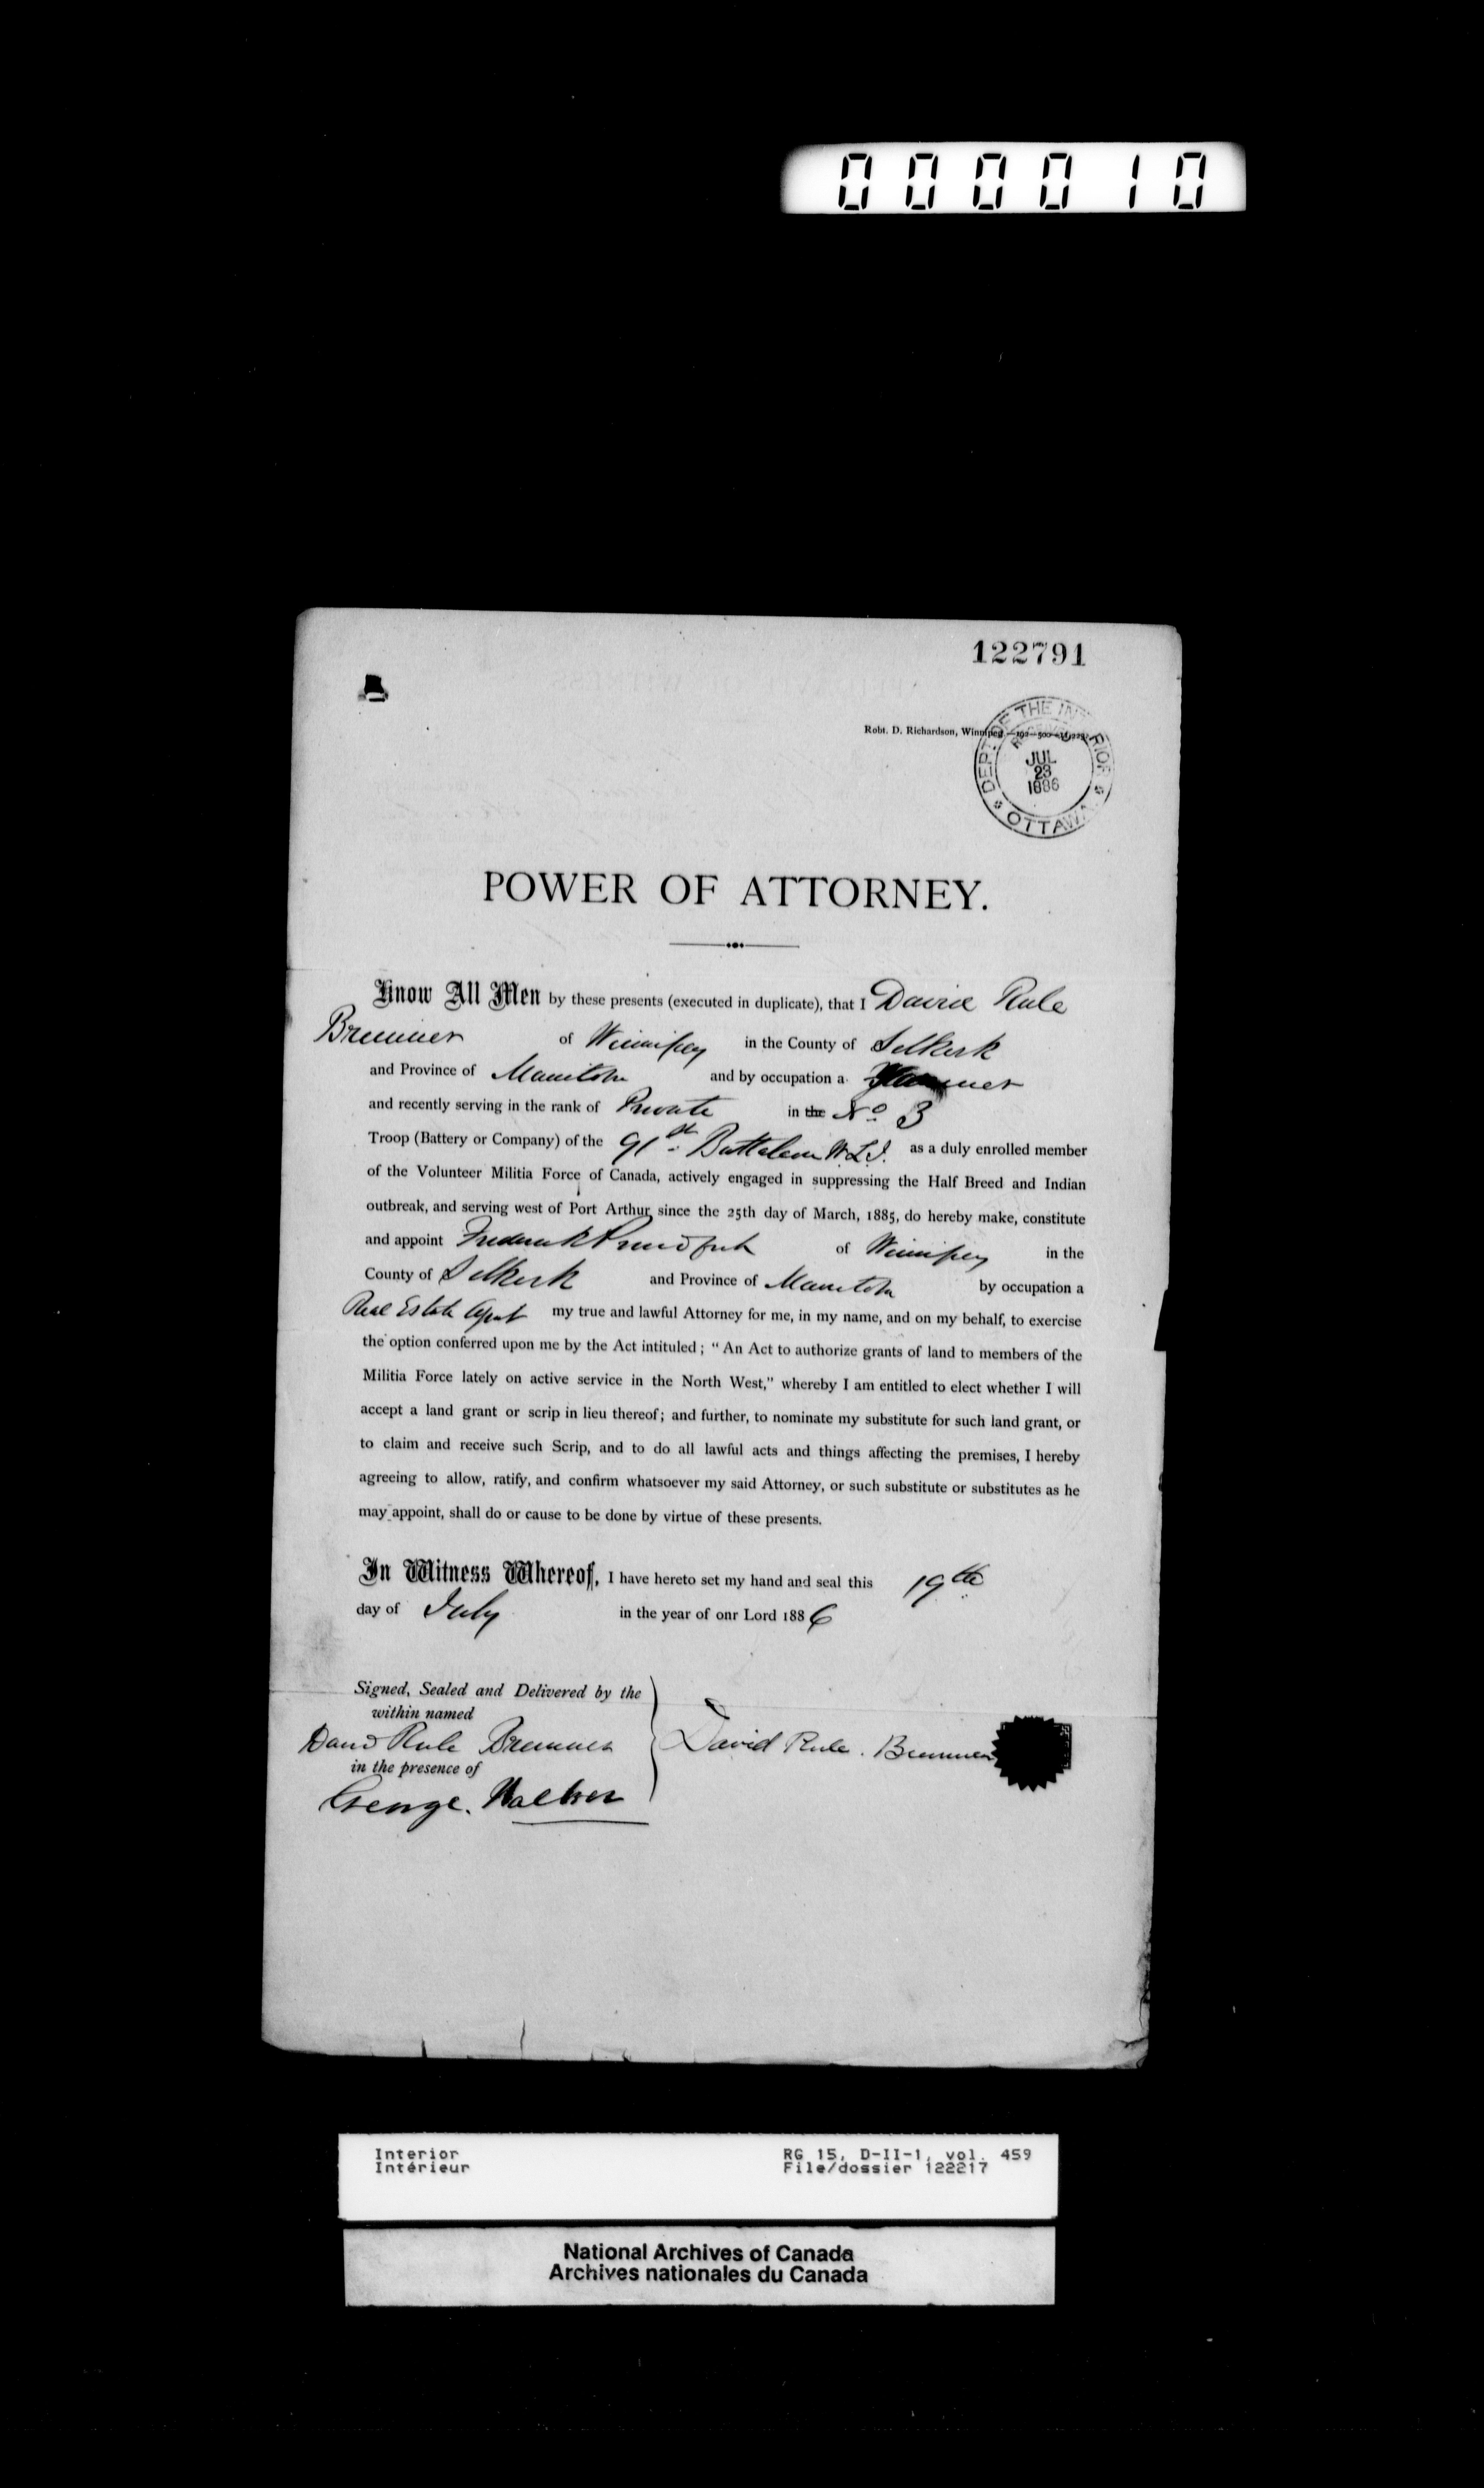 000010
122791
Robt. D. Richardson, Winnipeg
DEPT. OF THE INTERIOR
JUL
23
1886
OTTAWA
POWER OF ATTORNEY.
Know All Men by these presents (executed in duplicate), that I David Rule
Bremner of Winnipeg in the County of Selkirk
and Province of Manitoba and by occupation a
and recently serving in the rank of Private in the No. 3
Troop (Battery or Company) of the 91st Battalion W.L.I. as a duly enrolled member
of the Volunteer Militia Force of Canada, actively engaged in suppressing the Half Breed and Indian
outbreak, and serving west of Port Arthur since the 25th day of March, 1885, do hereby make, constitute
and appoint Frederick of Winnipeg in the
County of Selkirk and Province of Manitoba by occupation a
Real Estate Agent my true and lawful Attorney for me, in my name, and on my behalf, to exercise
the option conferred upon me by the Act intituled; "An Act to authorize grants of land to members of the
Militia Force lately on active service in the North West," whereby I am entitled to elect whether I will
accept a land grant or scrip in lieu thereof; and further, to nominate my substitute for such land grant, or
to claim and receive such Scrip, and to do all lawful acts and things affecting the premises, I hereby
agreeing to allow, ratify, and confirm whatsoever my said Attorney, or such substitute or substitutes as he
may appoint, shall do or cause to be done by virtue of these presents.
In Witness Whereof, I have hereto set my hand and seal this 19th
day of July in the year of onr Lord 1886
Signed, Sealed and Delivered by the
within named
David Rule Bremner
David Rule. Bremner
in the presence of
George. Walker
Interior
Intérieur
RG 15, D-II-1, vol. 459
File/dossier 122217
National Archives of Canada
Archives nationales du Canada